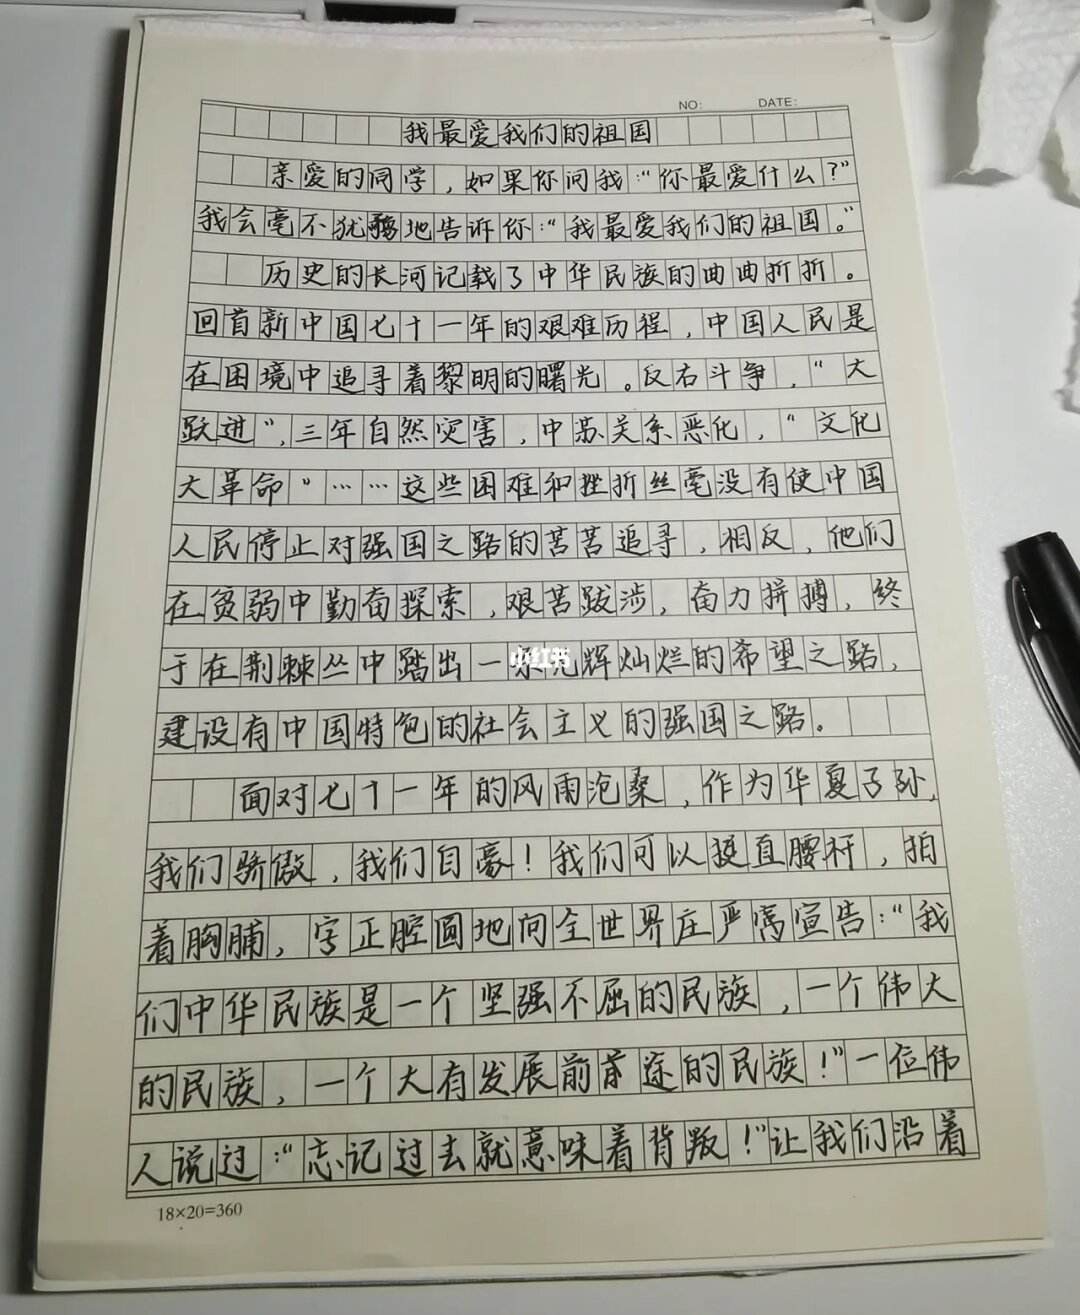 NO: DATE:
我最爱我们的祖国
亲爱的同学，如果你问我：“你最爱什么？”
我会毫不犹豫地告诉你：“我最爱我们的祖国。”
历史的长河记载了中华民族的曲曲折折。
回首新中国七十一年的艰难历程，中国人民是
在困境中追寻着黎明的曙光。反右斗争，“大
跃进”，三年自然灾害，中苏关系恶化，“文化
大革命”……这些困难和挫折丝毫没有使中国
人民停止对强国之路的苦苦追寻，相反，他们
在贫弱中勤奋探索，艰苦跋涉，奋力拼搏，终
于在荆棘丛中踏出一条光辉灿烂的希望之路，
小红书
建设有中国特色的社会主义的强国之路。
面对七十一年的风雨沧桑，作为华夏子孙，
我们骄傲，我们自豪！我们可以挺直腰杆，拍
着胸脯，字正腔圆地向全世界庄严宣告：“我
们中华民族是一个坚强不屈的民族，一个伟大
的民族，一个大有发展前途的民族！”一位伟
人说过：“忘记过去就意味着背叛！”让我们沿着
18×20=360